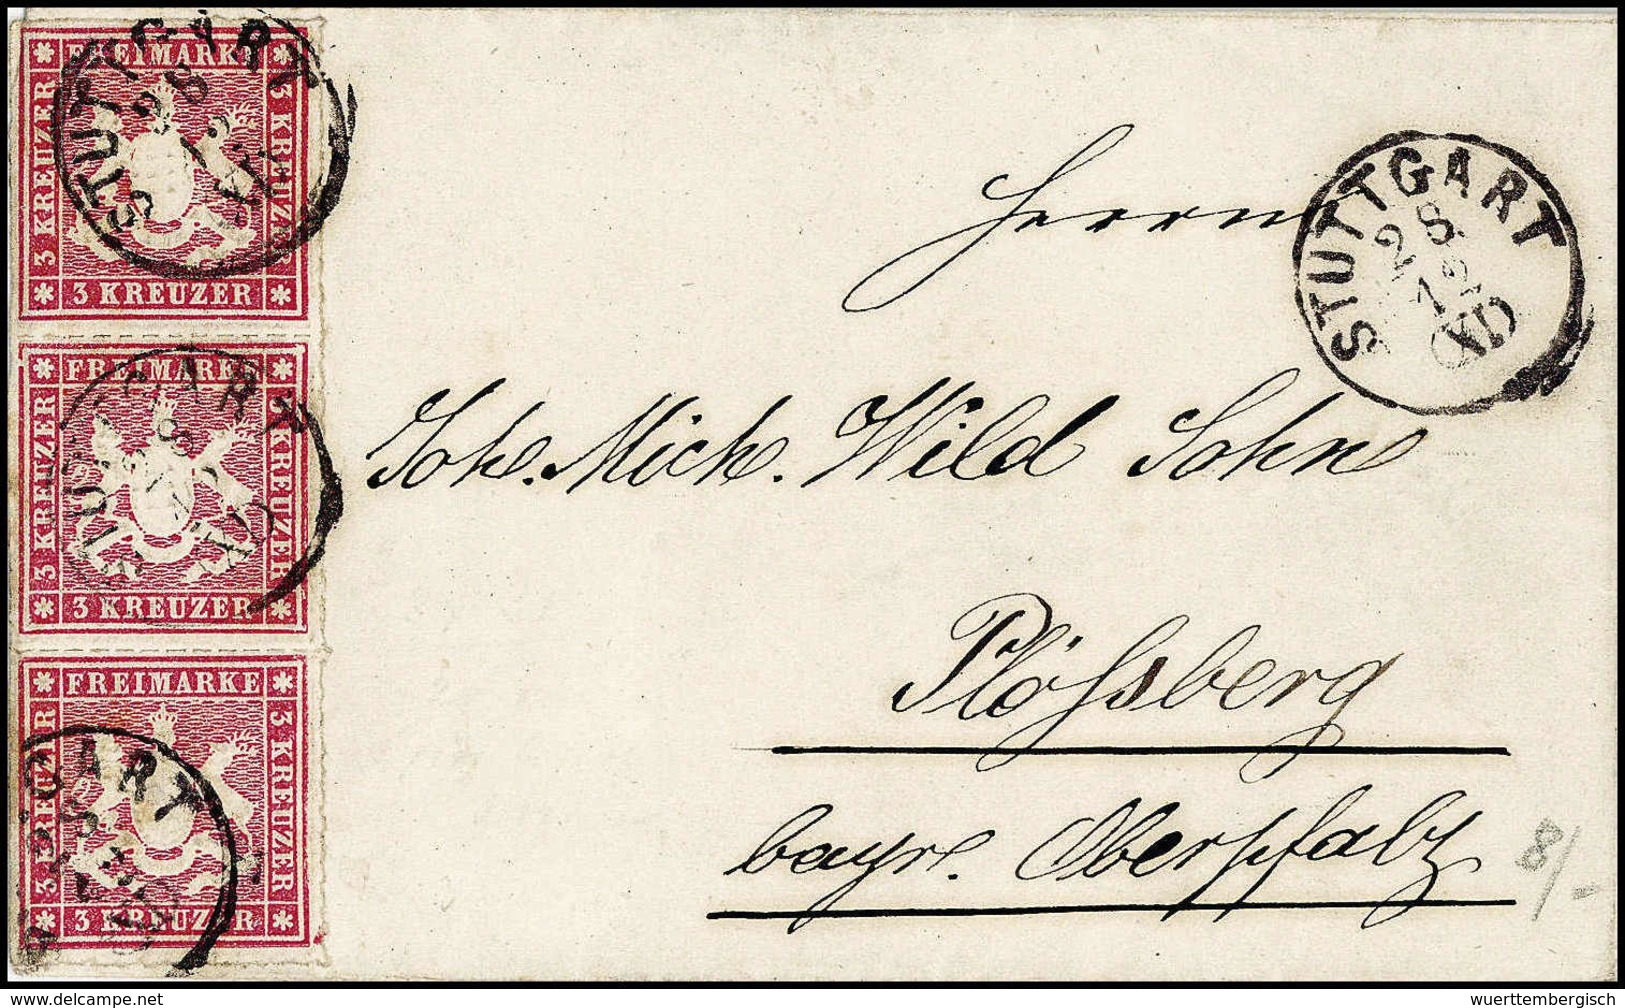 FREIMARKE
3 KREUZER
3 KREUZER
3 KREUZER
STUTTGART
28
FREIMARKE
3 KREUZER
3 KREUZER
3 KREUZER
FREIMARKE
3 KREUZER
3 KREUZER
3 KREUZER
STUTTGART
28
12
XI)
Herrn
Joh. Mich. Wild Sohn
Plößberg
bayr. Oberpfalz
8/-
© www.delcampe.net
wuerttembergisch